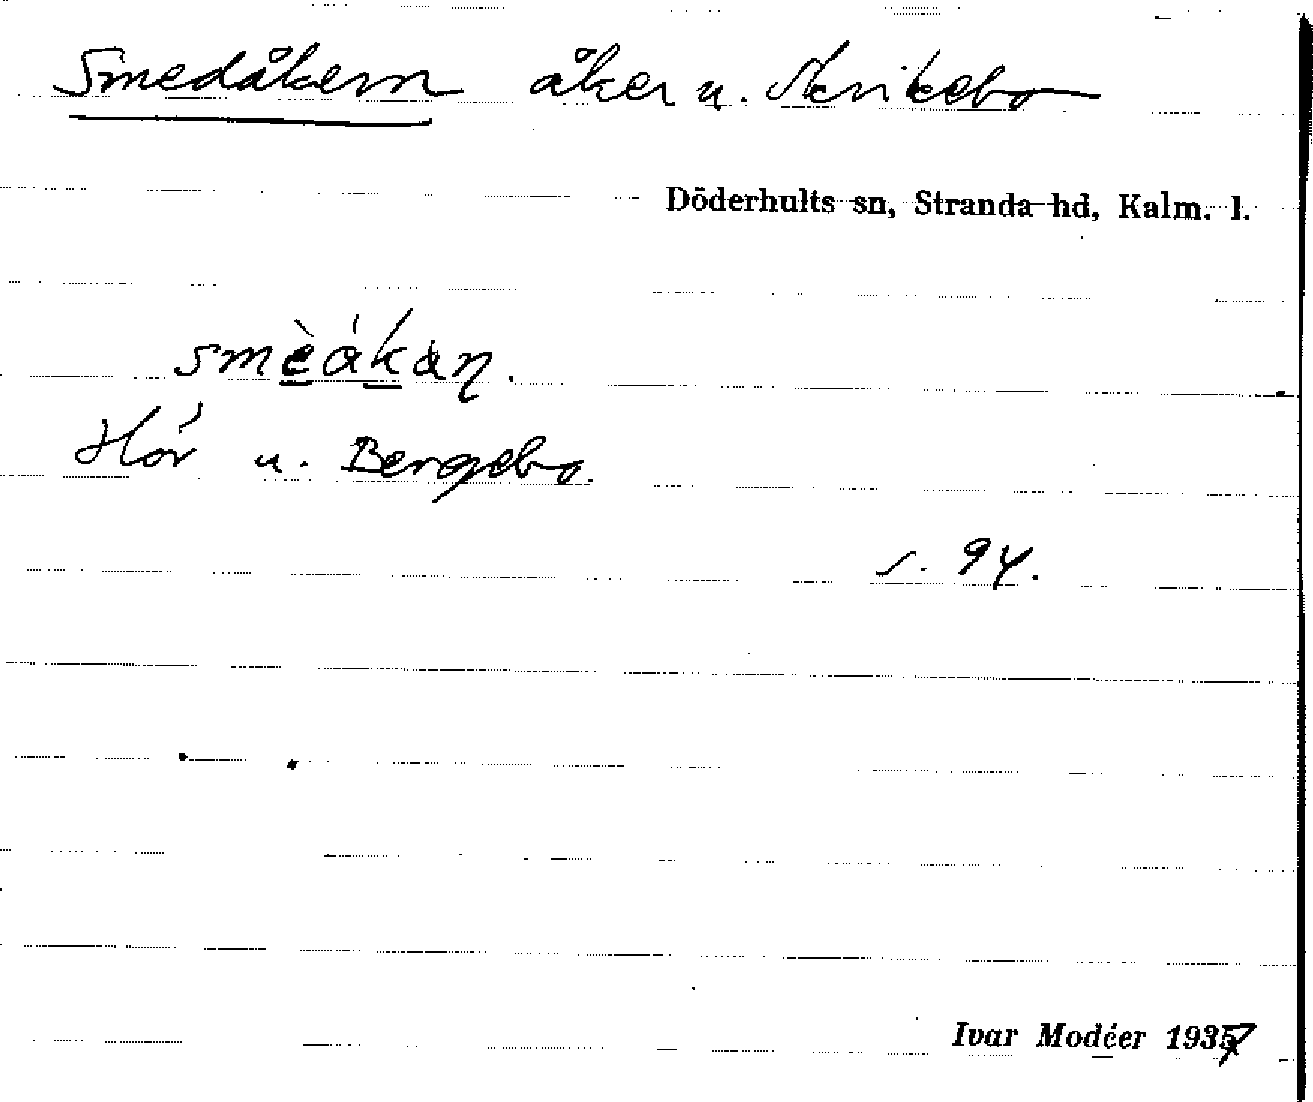 Smedåkern åker u. Skrikebo
Döderhults sn, Stranda hd, Kalm. l.
smèákàn.
Hör u. Bergebo.
s. 94.
Ivar Modéer 1937